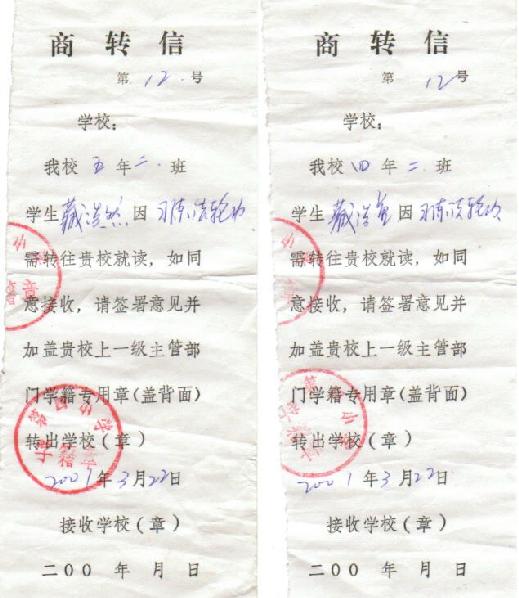 商转信
第 12 号
学校:
我校 五 年 二 班
学生 藏浩然 因 习练法轮功
需转往贵校就读,如同
意接收,请签署意见并
加盖贵校上一级主管部
门学籍专用章(盖背面)
转出学校(章)
2001 年 3 月 22 日
接收学校(章)
二00 年 月 日
商转信
第 12 号
学校:
我校 四 年 二 班
学生 藏浩 因 习练法轮功
需转往贵校就读,如同
意接收,请签署意见并
加盖贵校上一级主管部
门学籍专用章(盖背面)
转出学校(章)
2001 年 3 月 22 日
接收学校(章)
二00 年 月 日